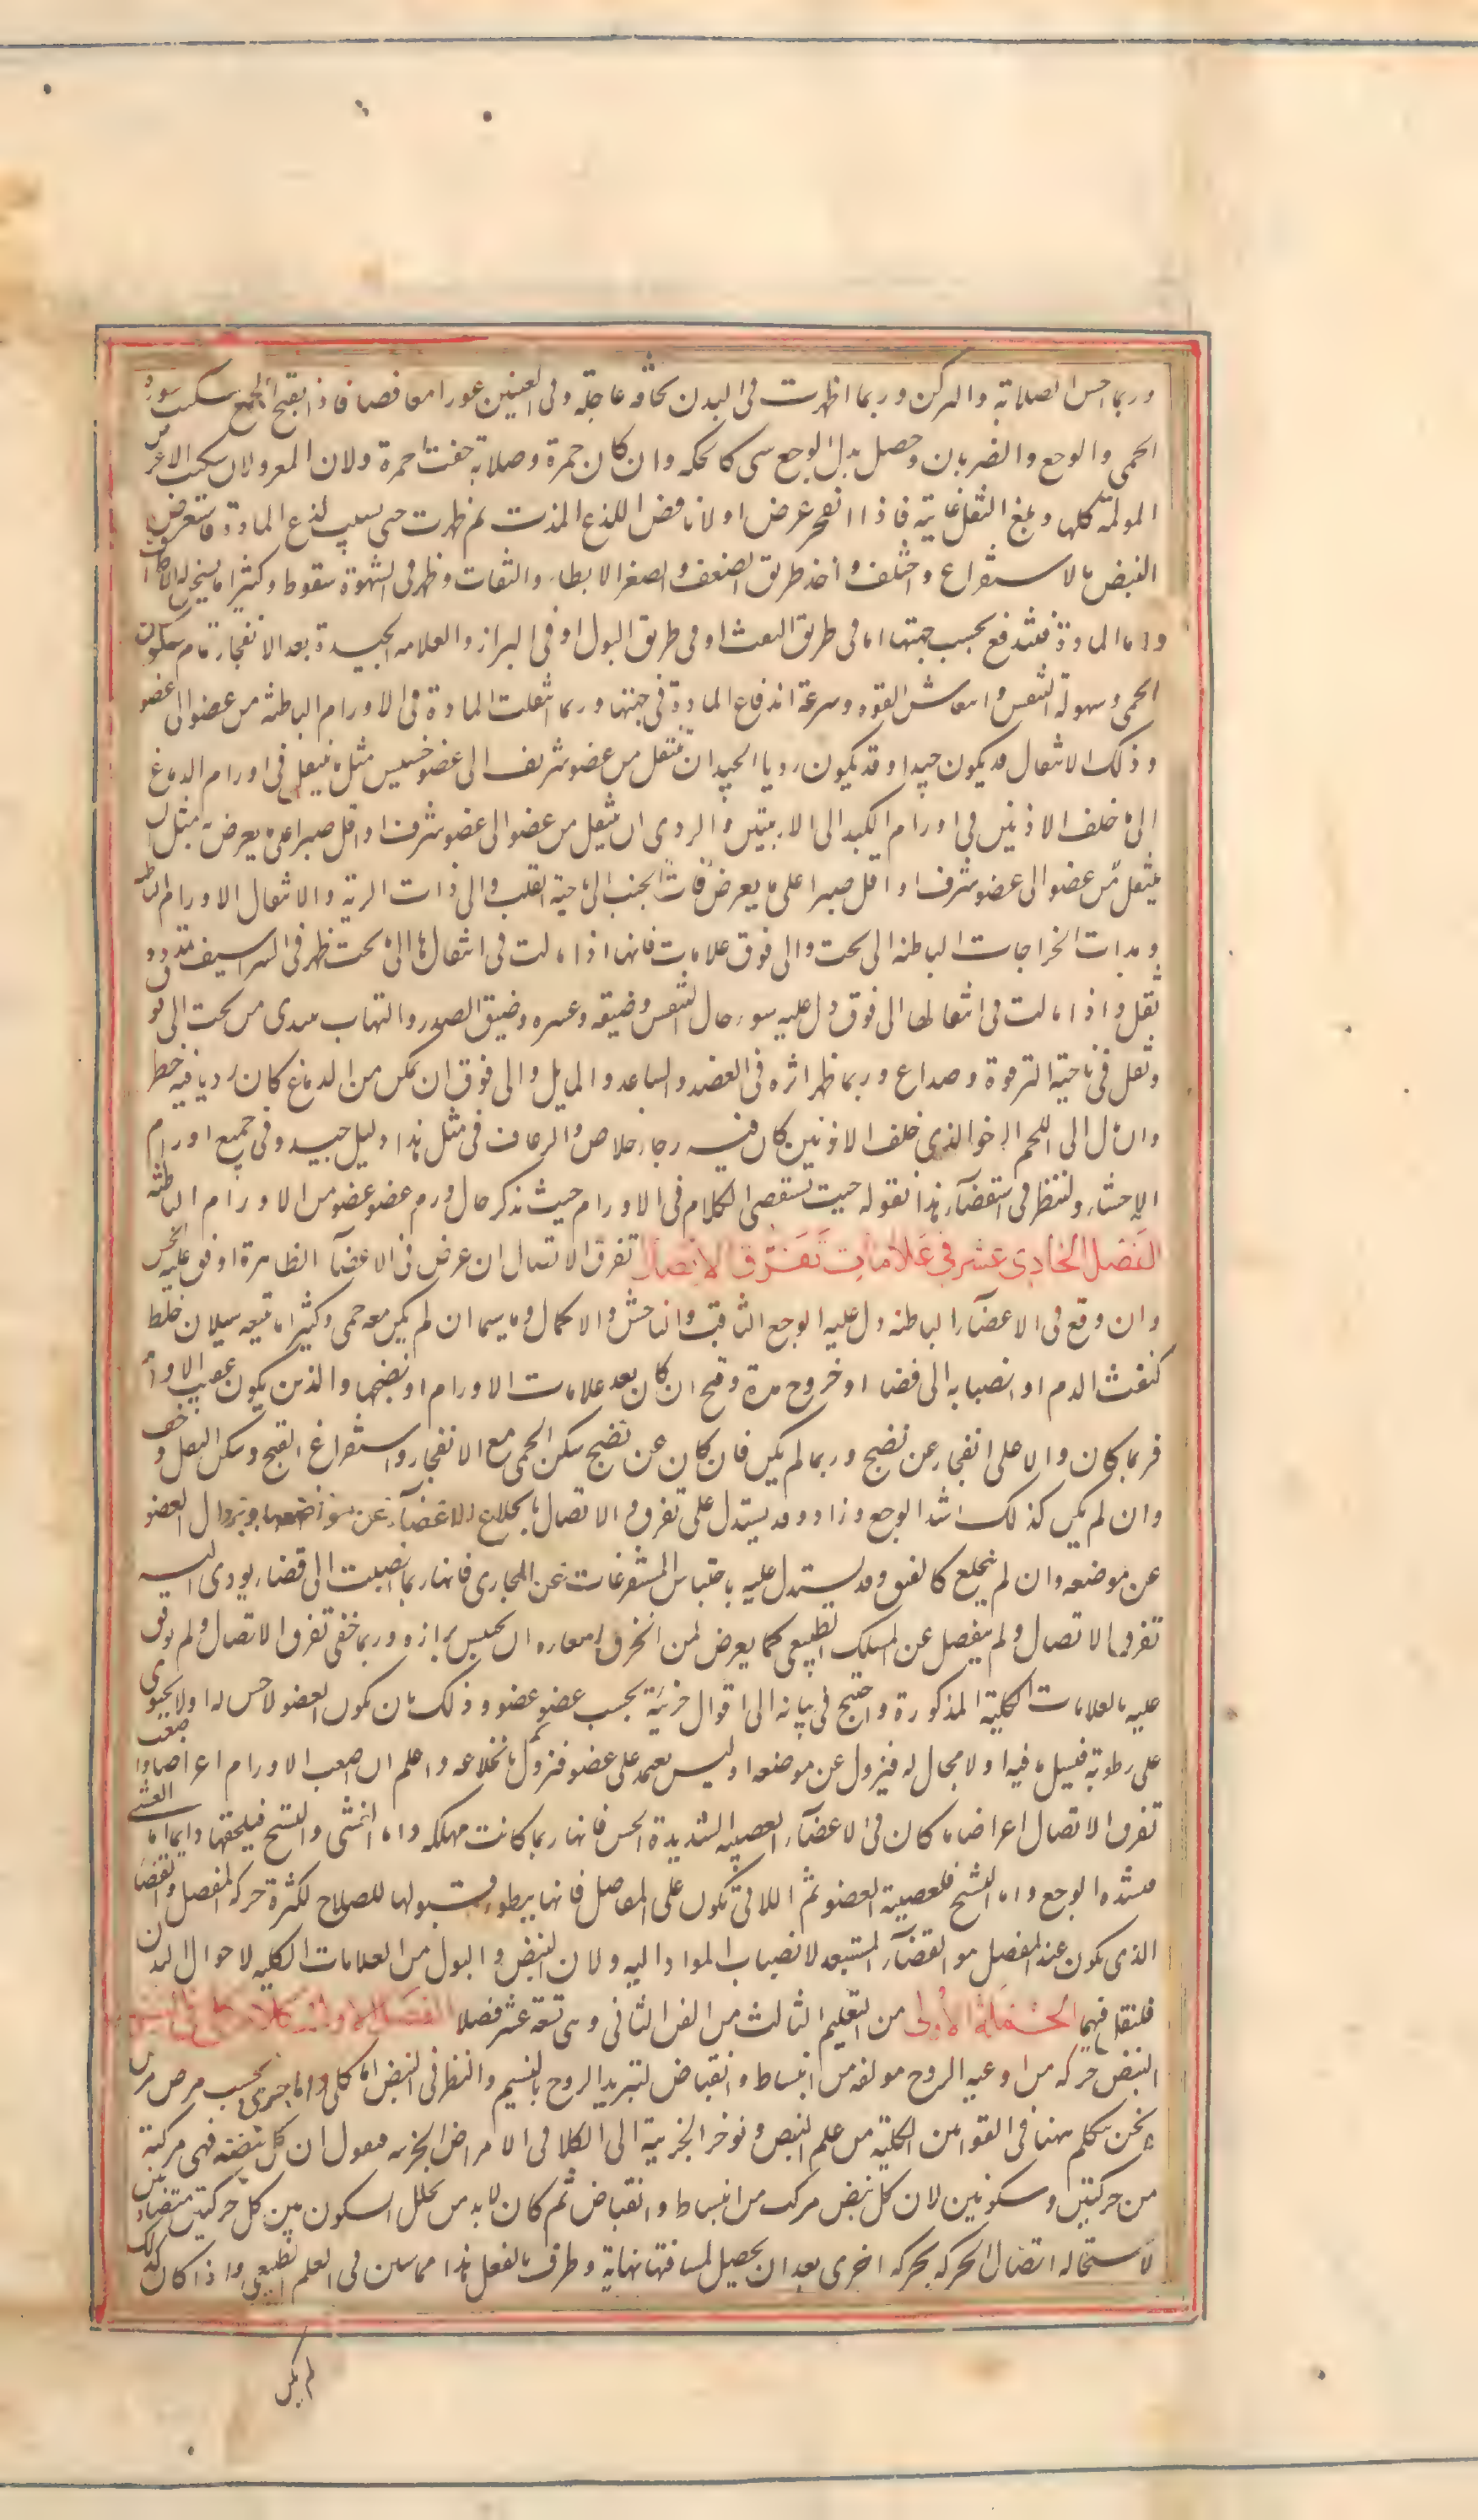 وربما احس الصلابة والمركن وربما اظهرت فى البدن نحافة عاجلة وفى العينين غورا مغافصا فاذا تقيح الجمع سكنت سورة
الحمى والوجع والضربان وحصل بدل الوجع شى كالحكة وان كان حمرة وصلابة خفت الحمرة ولان المغمز ولان سكنت الاعراض
المولمة كلها وبلغ الثقل غايته فاذا انفجر عرض اولا نافض للذع المدة ثم ظهرت حمى بسبب لذع المادة فاستعرض
النبض بالاستفراغ واختلف واخذ طريق الضعف والصغر والابطاء والتفاوت وظهر فى الشهوة سقوط وكثيرا ما يسخن له الاطراف
واما المادة فتندفع بحسب جهتها اما فى طريق النفث او فى طريق البول او فى البراز والعلامة الجيدة بعد الانفجار تمام سكون
الحمى وسهولة التنفس وانتعاش القوة وسرعة اندفاع المادة فى جهتها وربما انتقلت المادة فى الاورام الباطنة من عضو الى عضو
وذلك الانتقال قد يكون جيدا وقد يكون رديا الجيد ان ينتقل من عضو شريف الى عضو خسيس مثل ما ينتقل فى اورام الدماغ
الى ما خلف الاذنين فى اورام الكبد الى الاربيتين والردى ان ينتقل من عضو الى عضو اشرف او اقل صبرا على ما يعرض به مثل ان
ينتقل من عضو الى عضو اشرف او اقل صبرا على ما يعرض ذات الجنب الى ناحية القلب والى ذات الرية والانتقال الاورام الباطنة
ومدات الخراجات الباطنة الى تحت والى فوق علامات فانها اذا مالت فى انتقالها الى ما تحت ظهر فى الشراسيف تمدد و
ثقل واذا مالت فى انتقالها الى فوق دل عليه سوء حال التنفس وضيقه وعسره وضيق الصدر والتهاب يبتدى من تحت الى فو
وثقل فى ناحية الترقوة وصداع وربما ظهر اثره فى العضد والساعد والمايل الى فوق ان تمكن من الدماغ كان رديا فيه خطر
وان مال الى اللحم الرخو الذى خلف الاذنين كان فيه رجاء خلاص والرعاف فى مثل هذا دليل جيد وفى جميع اورام
الاحشاء ولننتظر فى استقصاء هذا بقوله حيث نستقصى الكلام فى الاورام حيث نذكر حال ورم عضو عضو من الاورام الباطنة
الفصل الحادى عشر فى علامات تفرق الاتصال تفرق الاتصال ان عرض فى الاعضاء الظاهرة اوقف عليه الحس
وان وقع فى الاعضاء الباطنة دل عليه الوجع الثاقب والناخس والاكال ولا سيما ان لم يكن معه حمى وكثيرا ما يتبعه سيلان خلط
كنفث الدم او انصبابه الى فضاء او خروج مدة وقيح ان كان بعد علامات الاورام او نضجها والذى يكون عقيب الاورام
فربما كان دالا على انفجار عن نضج وربما لم يكن فان كان عن نضج سكن الحمى مع الانفجار واستفراغ القيح وسكن الثقل وخف
وان لم يكن كذلك اشتد الوجع وزاد وقد يستدل على تفرق الاتصال بانخلاع الاعضاء عن مواضعها وبزوال العضو
عن موضعه وان لم ينخلع كالفتق وقد يستدل عليه باحتباس المستفرغات عن المجارى فانها ربما انصبت الى فضاء يودى اليه
تفرق الاتصال ولم ينفصل عن المسلك الطبيعى كما يعرض لمن انخرق امعاوه ان يحتبس برازه وربما خفى تفرق الاتصال ولم يوقف
عليه بالعلامات الكلية المذكورة واحتيج فى بيانه الى اقوال جزئية بحسب عضو عضو وذلك بان يكون العضو لا حس له او لا يحتوى
على رطوبة فيسيل ما فيه او لا مجال له فيزول عن موضعه او ليس يعتمد على عضو فيزول بانخلاعه واعلم ان اصعب الاورام اعراضا واصعب
تفرق الاتصال اعراضا ما كان فى الاعضاء العصبية الشديدة الحس فانها ربما كانت مهلكة واما الغشى والتشنج فيلحقها دايما اما الغشى
فلشدة الوجع واما التشنج فلعصبية العضو ثم اللاتى تكون على المفاصل فانها يبطؤ قبولها للصلاح لكثرة حركة المفصل والفضاء
الذى يكون عند المفصل هو الفضاء المستبعد لانصباب المواد اليه ولان النبض والبول من العلامات الكلية لاحوال البدن
فلنقل فيهما الجملة الاولى من التعليم الثالث من الفن الثانى وهى تسعة عشر فصلا الفصل الاول كلام كلى فى النبض
النبض حركة من اوعية الروح مولفة من انبساط وانقباض لتبريد الروح بالنسيم والنظر فى النبض اما كلى واما جزى بحسب مرض مرض
ونحن نتكلم ههنا فى القوانين الكلية من علم النبض ونوخر الجزئية الى الكلام فى الامراض الجزئية فنقول ان كل نبضة فهى مركبة
من حركتين وسكونين لان كل نبض مركب من انبساط وانقباض ثم كان لا بد من تخلل السكون بين كل حركتين متضادتين
لاستحالة اتصال الحركة بحركة اخرى بعد ان يحصل لمسافتها نهاية وطرف بالفعل هذا مما يبين فى العلم الطبيعى واذا كان كذلك
لم يكن